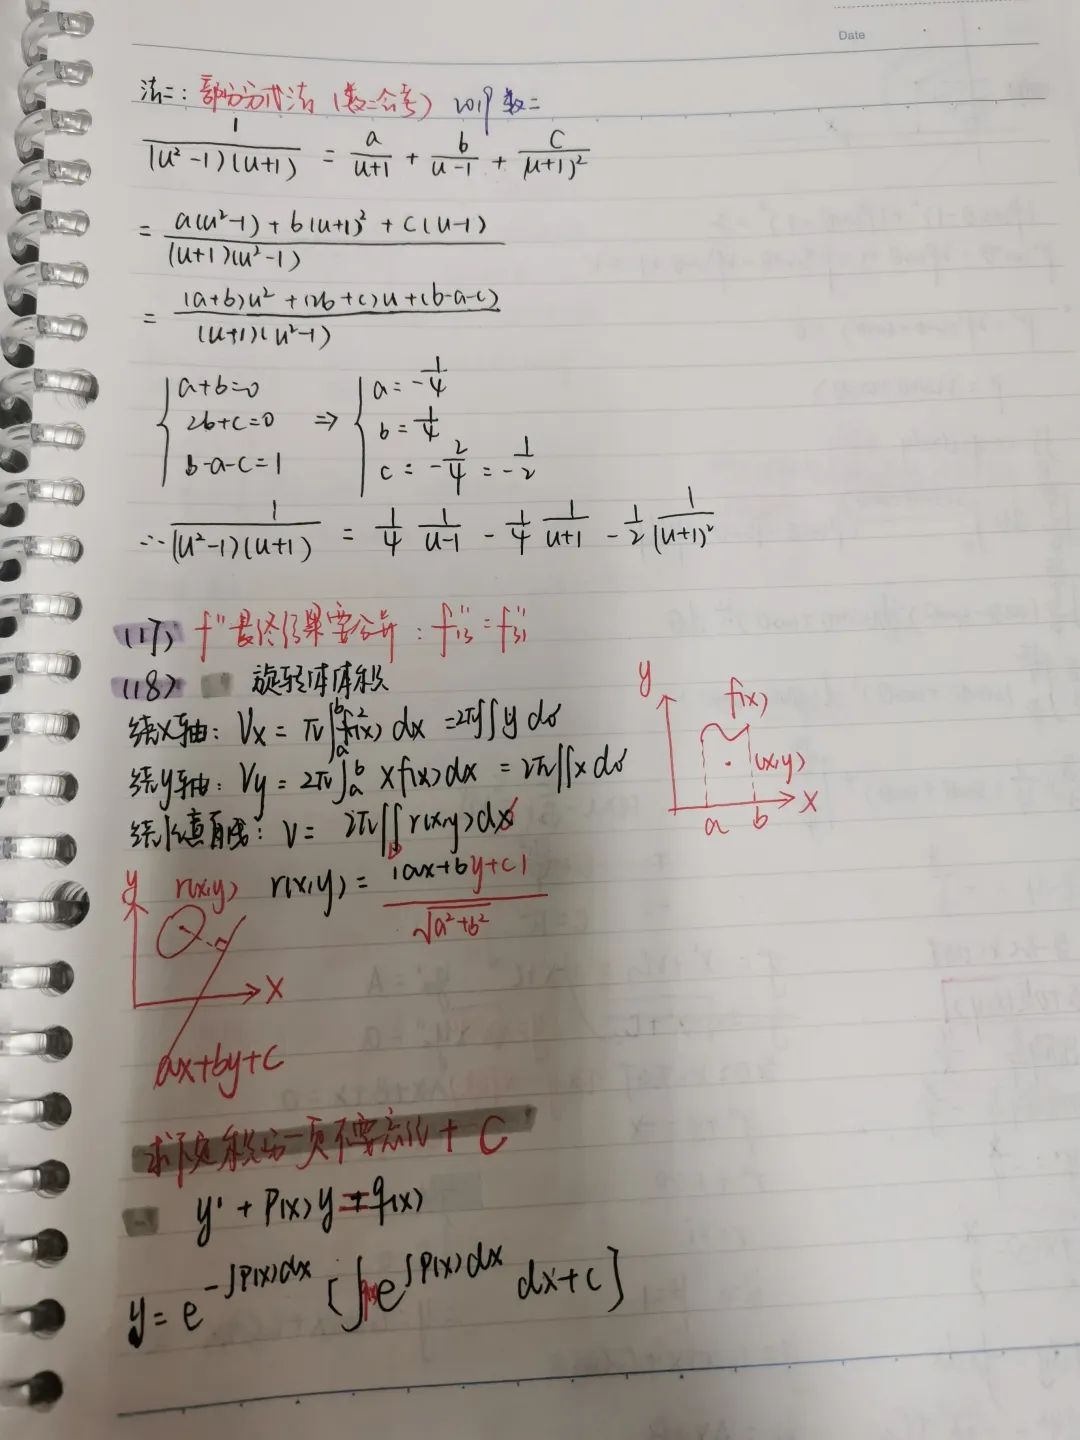 Date
法二：部分分式法（数二会考）2019数二
1/((u²-1)(u+1)) = a/(u+1) + b/(u-1) + c/(u+1)²
= (a(u²-1)+b(u+1)²+c(u-1))/((u+1)(u²-1))
= ((a+b)u²+(2b+c)u+(b-a-c))/((u+1)(u²-1))
{a+b=0 ⇒ {a=-1/4
2b+c=0 b=1/4
b-a-c=1 c=-2/4=-1/2
∴ 1/((u²-1)(u+1)) = 1/4 1/(u-1) - 1/4 1/(u+1) - 1/2 1/(u+1)²
(17) f"最终结果要合并：f₁₃"=f₃₁"
(18) 旋转体体积
绕x轴：Vx=π∫ₐᵇf²(x)dx=2π∬ydσ
绕y轴：Vy=2π∫ₐᵇxf(x)dx=2π∬xdσ
y f(x) (x,y) a b x
绕任意直线：V=2π∬r(x,y)dσ
D
r(x,y)=|ax+by+c|/√(a²+b²)
y r(x,y) x
ax+by+c
求不定积分一定不要忘记+C
y'+p(x)y=q(x)
y=e^(-∫p(x)dx)[∫q(x)e^(∫p(x)dx)dx+c]